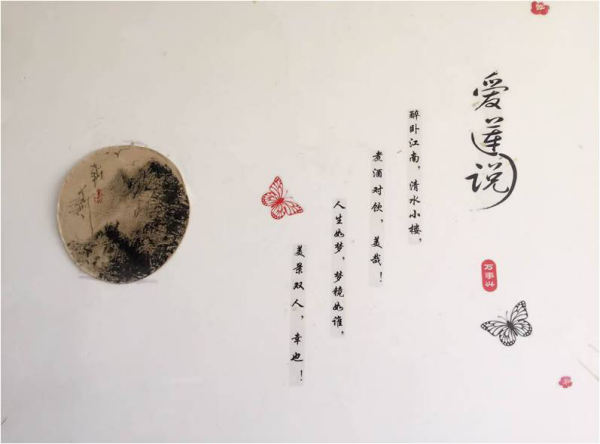 爱莲说
万事兴
醉卧江南，清水小楼，
煮酒对饮，美哉！
人生如梦，梦镜如谁，
美景双人，幸也！